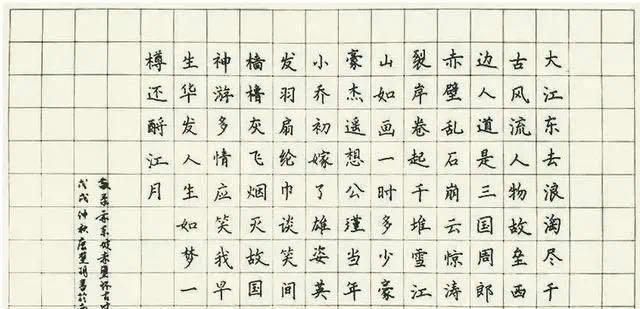 大江东去浪淘尽千
古风流人物故垒西
边人道是三国周郎
赤壁乱石崩云惊涛
裂岸卷起千堆雪江
山如画一时多少豪
豪杰遥想公瑾当年
小乔初嫁了雄姿英
发羽扇纶巾谈笑间
樯橹灰飞烟灭故国
神游多情应笑我早
生华发人生如梦一
樽还酹江月
录苏东坡赤壁怀古
戊戌仲秋